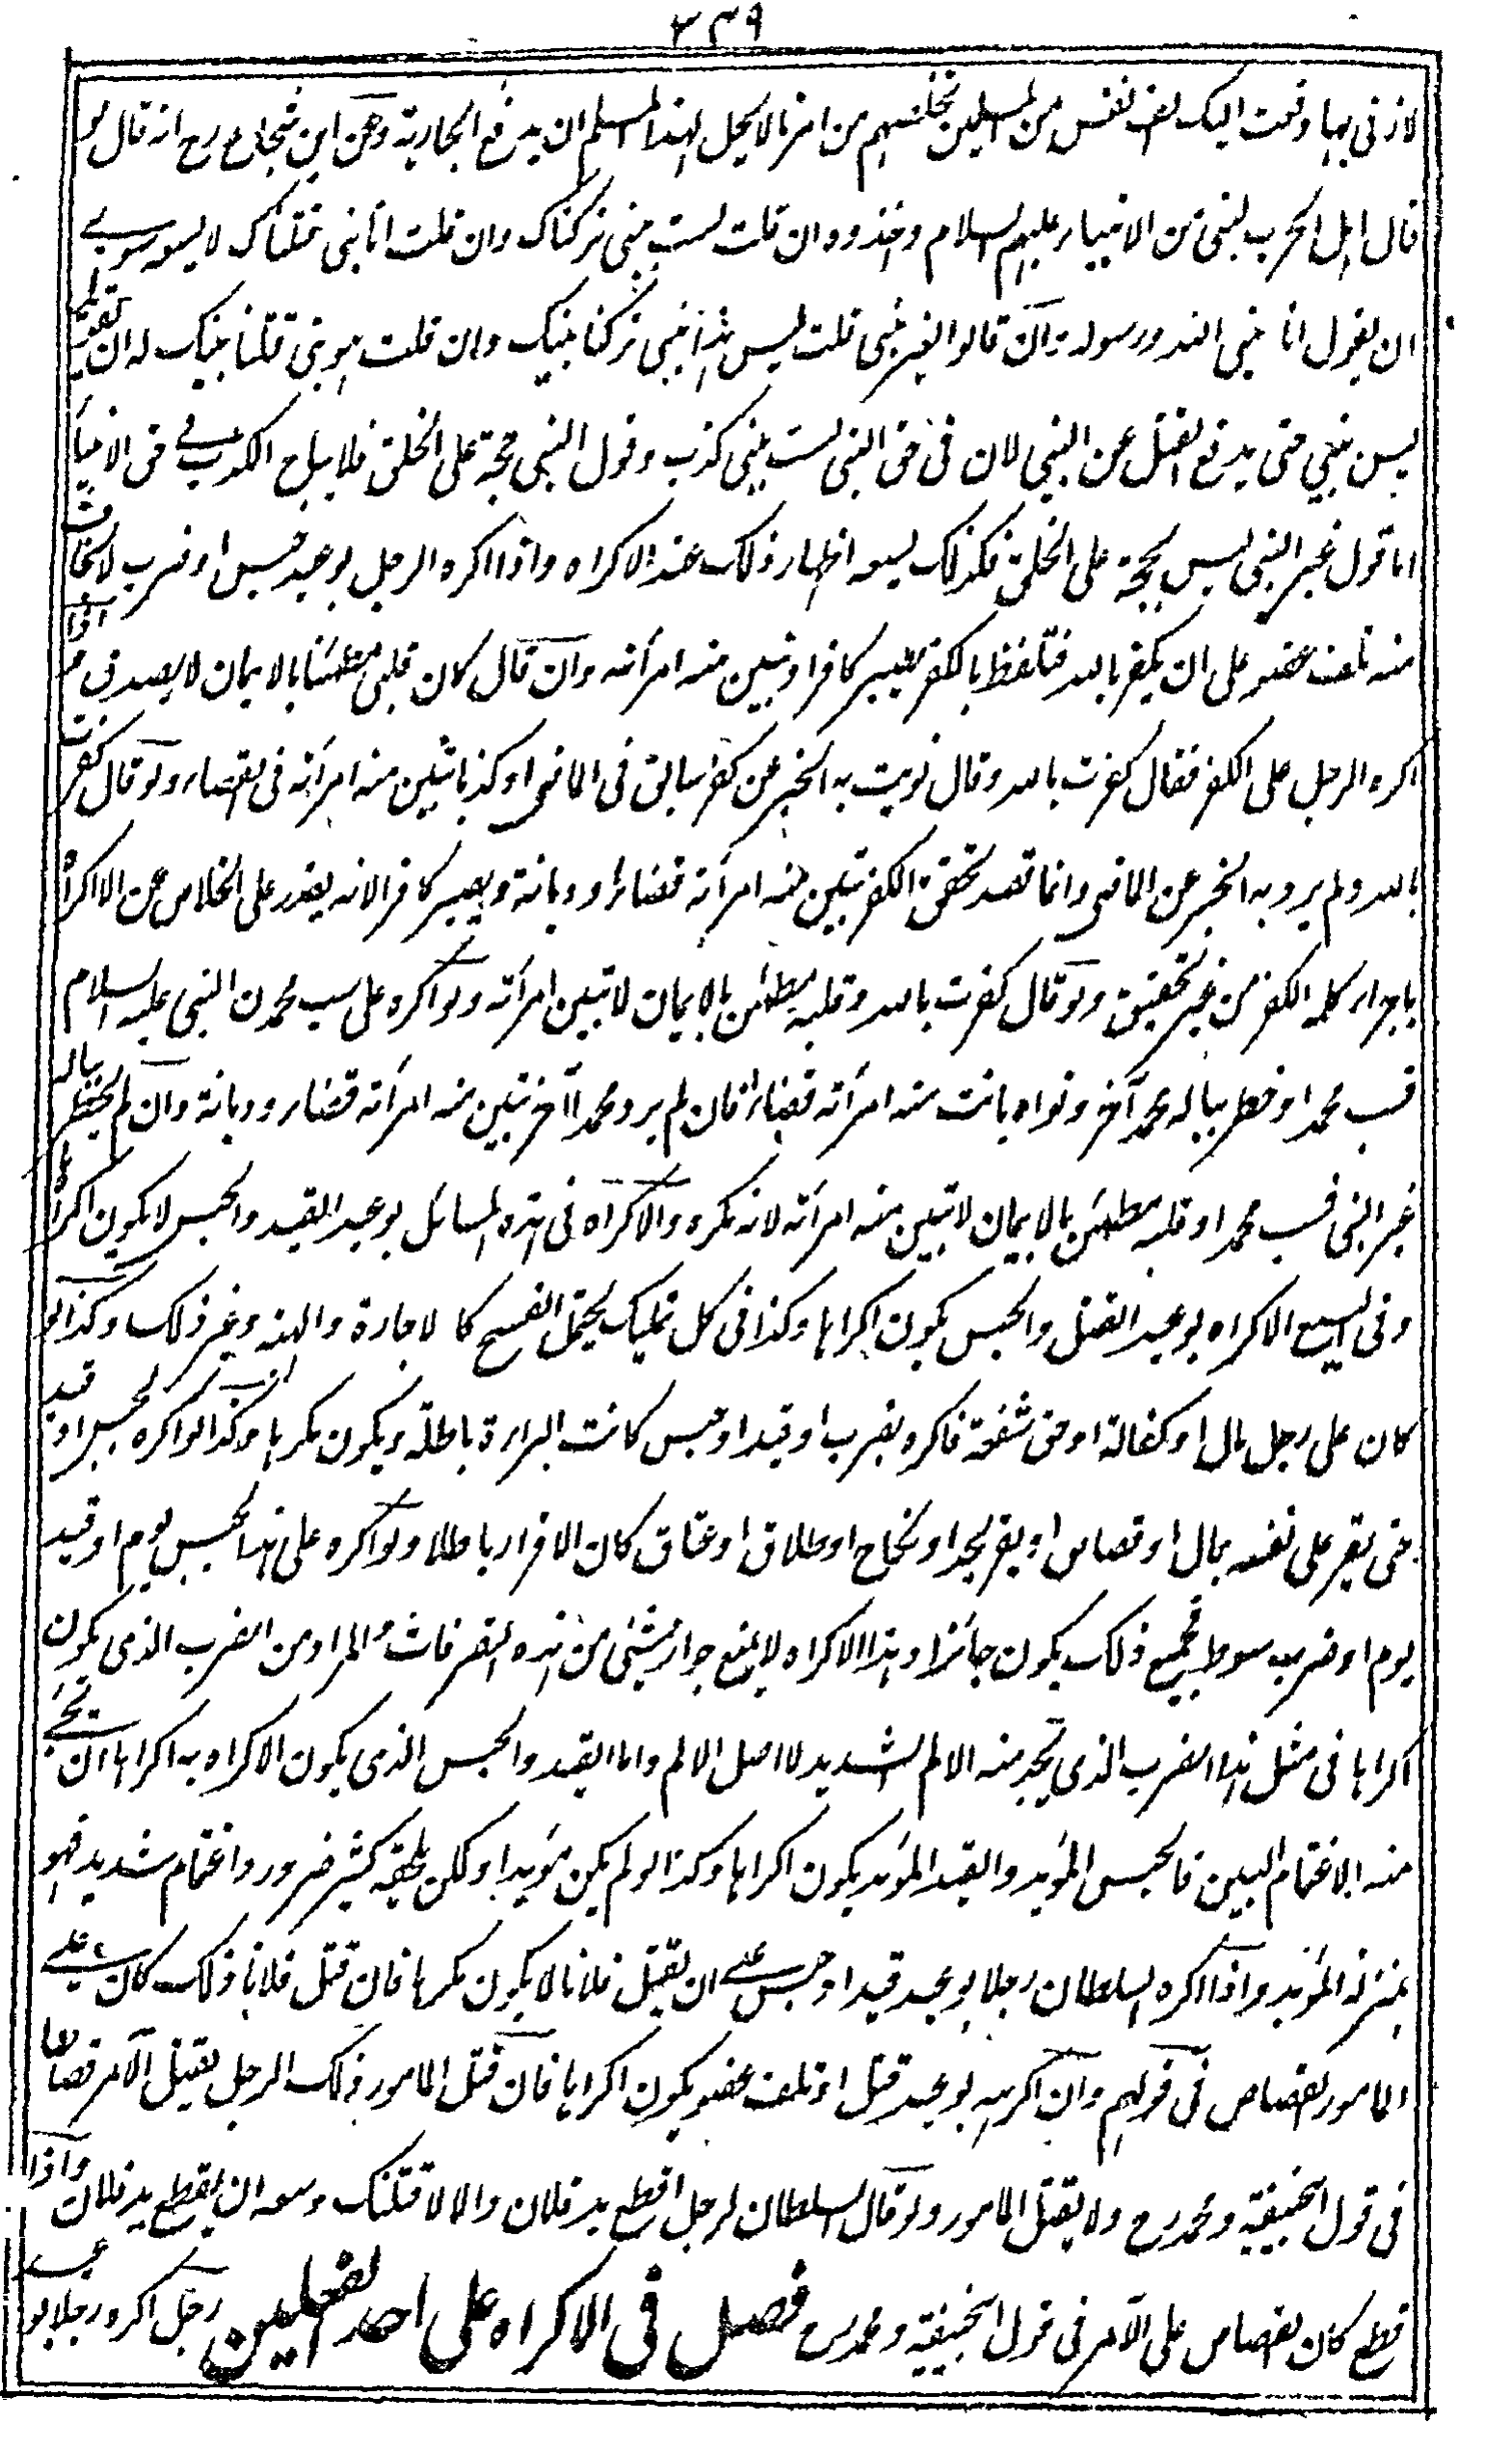 ٢٣٩
لازنى بها دفعت اليك الف نفس من المسلمين نخلصهم من اسرنا لا يحل لهذا المسلم ان يدفع الجارية وعن ابن شجاع رح انه قال لو
قال اهل الحرب لنبى من الانبياء عليهم السلام واخذوه ان قلت لست بنبى تركناك وان قلت انا نبى قتلناك لا يسعه سوى
ان يقول انا نبى الله ورسوله وان قالوا لغير نبى قلت ليس هذا نبى تركنا نبيك وان قلت هو نبى قتلنا نبيك له ان يقول
ليس بنبي حتى يدفع القتل عن النبي لان فى حق النبى لست بنبى كذب وقول النبى حجة على الخلق فلا يباح الكذب فى حق الانبياء
اما قول غير النبى ليس بحجة على الخلق فكذلك يسعه اظهار ذلك عند الاكراه واذا اكره الرجل بوعيد حبس او ضرب لا يخاف
منه تلف عضو على ان يكفر بالله فتلفظ بالكفر يصير كافرا وتبين منه امرأته وان قال كان قلبى مطمئنا بالايمان لا يصدق واذا
اكره الرجل على الكفر فقال كفرت بالله وقال نويت به الخبر عن كفر سابق فى الماضى او كذبا تبين منه امرأته فى القضاء ولو قال كفرت
بالله ولم يرد به الخبر عن الماضى وانما قصد تحقيق الكفر تبين منه امرأته قضاء وديانة ويصير كافرا لانه يقدر على الخلاص عن الاكراه
باجراء كلمة الكفر من غير تحقيق ولو قال كفرت بالله وقلبه مطمئن بالايمان لا تبين امرأته ولو اكره على سب محمدن النبى عليه السلام
فسب محمدا وخطر بباله محمد آخر ونواه بانت منه امرأته قضاء فان لم يرد محمدا آخر تبين منه امرأته قضاء وديانة وان لم يخطر بباله
غير النبى فسب محمدا وقلبه مطمئن بالايمان لا تبين منه امرأته لانه مكره والاكراه فى هذه المسائل بوعيد القيد والحبس لا يكون اكراها
وفى البيع الاكراه بوعيد القتل والحبس يكون اكراها وكذا فى كل تمليك يحتمل الفسخ كالاجارة والهبة وغير ذلك وكذا لو
كان على رجل مال او كفالة او حق شفعة فاكره بضرب او قيد او حبس كانت البراءة باطلة ويكون مكرها وكذا لو اكره بحبس او قيد
حتى يقر على نفسه بمال او قصاص او يقر بحد او نكاح او طلاق او عتاق كان الاقرار باطلا ولو اكره على هذا بحبس يوم او قيد
يوم او ضرب سوط فجميع ذلك يكون جائزا وهذا الاكراه لا يمنع جواز شئ من هذه التصرفات والمراد من الضرب الذى يكون
اكراها فى مثل هذا الضرب الذى يجد منه الالم الشديد لا اصل الالم واما القيد والحبس الذى يكون الاكراه به اكراها ان يجئ
منه الاغتمام البين فالحبس المؤبد والقيد المؤبد يكون اكراها وكذا لو لم يكن مؤبدا ولكن يلحقه كثير ضرر واغتمام شديد فهو
بمنزلة المؤبد واذا اكره السلطان رجلا بوعيد قيد او حبس على ان يقتل فلانا لا يكون مكرها فان قتل فلانا ذلك كان على
المامور القصاص فى قولهم وان اكرهه بوعيد قتل او تلف عضو يكون اكراها فان قتل المامور ذلك الرجل يقتل الآمر قصاصا
فى قول ابيحنيفة ومحمد رح ولا يقتل المامور ولو قال السلطان لرجل اقطع يد فلان والا لاقتلنك وسعه ان يقطع يد فلان واذا
قطع كان القصاص على الآمر فى قول ابيحنيفة ومحمد رح فصل فى الاكراه على احد الفعلين رجل اكره رجلا بوعيد